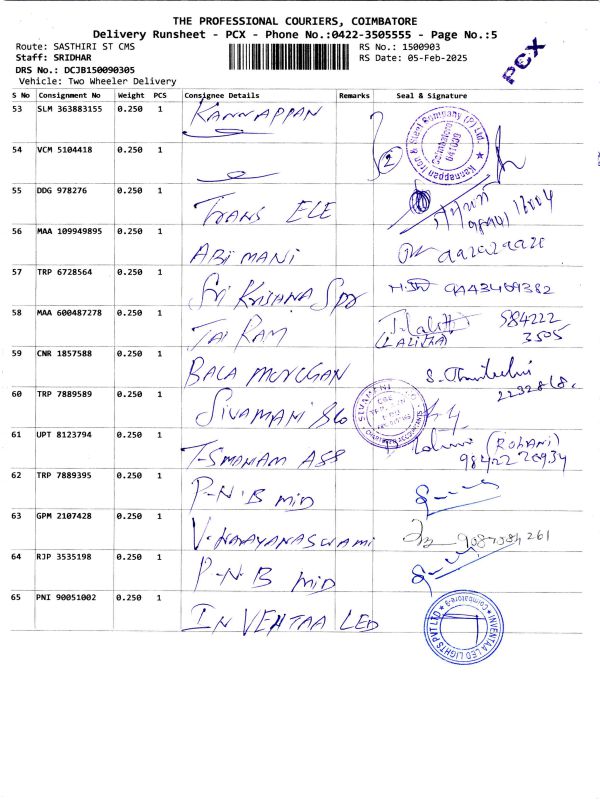 THE PROFESSIONAL COURIERS, COIMBATORE
Delivery Runsheet - PCX - Phone No.:0422-3505555 - Page No.:5
Route: SASTHIRI ST CMS
RS No.: 1500903
Staff: SRIDHAR
RS Date: 05-Feb-2025
DRS No.: DCJB150090305
Vehicle: Two Wheeler Delivery
PCX
S No Consignment No Weight PCS Consignee Details Remarks Seal & Signature
53 SLM 363883155 0.250 1 KANNAPPAN
Kannappan Iron & Steel Company (P) Ltd.
Coimbatore
641009
2
54 VCM 5104418 0.250 1
55 DDG 978276 0.250 1 TRANS ELE
56 MAA 109949895 0.250 1 ABIMANI
57 TRP 6728564 0.250 1 Sri Krishna Spr 9443469382
58 MAA 600487278 0.250 1 Jai Ram (LALITHA) 984222 3505
59 CNR 1857588 0.250 1 BALA MURUGAN
60 TRP 7889589 0.250 1 SIVAMANI &Co
SIVAMANI & CO
CHARTERED ACCOUNTANTS
61 UPT 8123794 0.250 1 T-SMANIAM ASS (ROHANI)
62 TRP 7889395 0.250 1 P-N-B MID
63 GPM 2107428 0.250 1 V-NARAYANASWAMI
64 RJP 3535198 0.250 1 P-N-B MID
65 PNI 90051002 0.250 1 INVENTAA LED
INVENTAA LED LIGHTS PVT LTD
Coimbatore-9